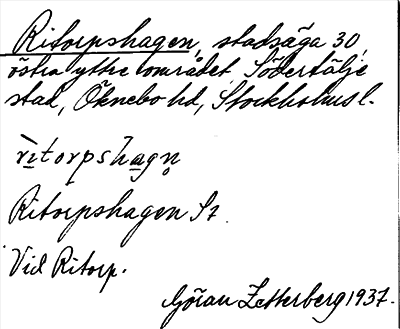 Ritorpshagen, stadsäga 30,
östra yttre området, Södertälje
stad, Öknebo hd, Stockholms l.
rìtorpshagn̥
Ritorpshagen St.
Vid Ritorp.
Göran Zetterberg 1937.